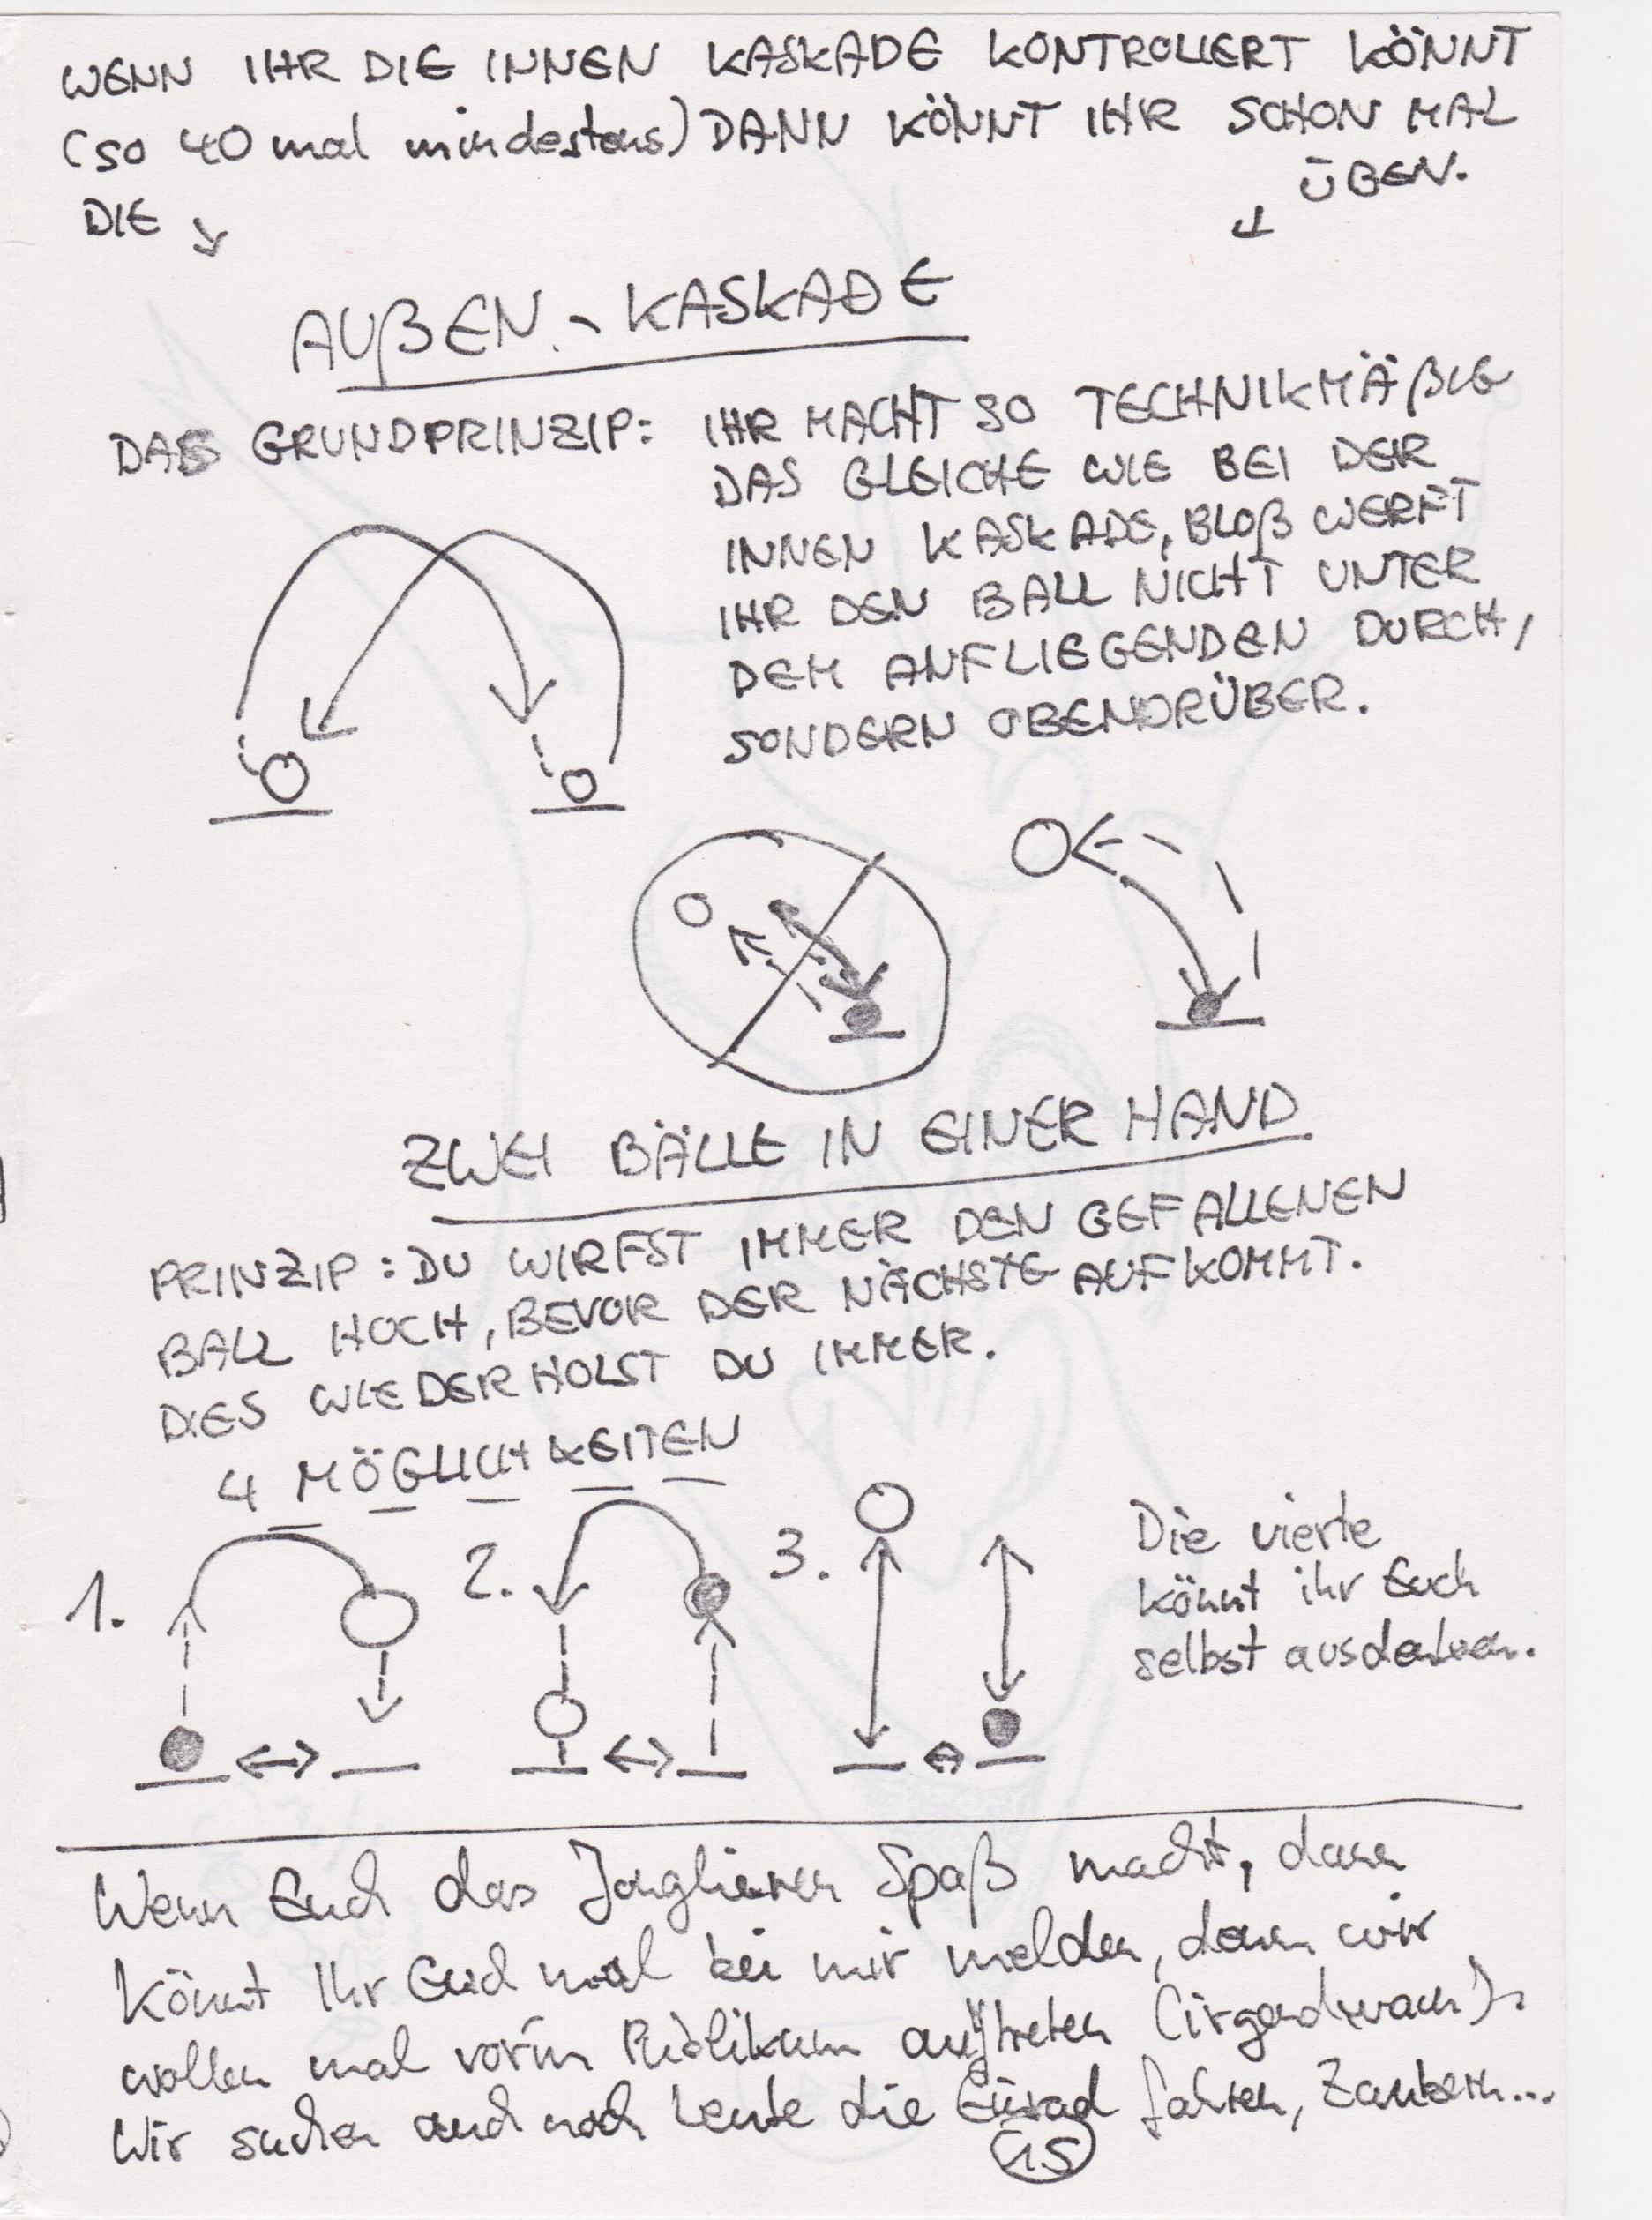 WENN IHR DIE INNEN KASKADE KONTROLLIERT KÖNNT
(so 40 mal mindestens) DANN KÖNNT IHR SCHON MAL
ÜBEN.
DIE ↘ ↙
AUßEN-KASKADE
DAS GRUNDPRINZIP: IHR MACHT SO TECHNIKMÄßIG
DAS GLEICHE WIE BEI DER
INNEN KASKADE, BLOß WERFT
IHR DEN BALL NICHT UNTER
DEM ANFLIEGENDEN DURCH,
SONDERN OBENDRÜBER.
ZWEI BÄLLE IN EINER HAND
PRINZIP: DU WIRFST IMMER DEN GEFALLENEN
BALL HOCH, BEVOR DER NÄCHSTE AUFKOMMT.
DIES WIEDERHOLST DU IMMER.
4 MÖGLICHKEITEN
1. 2. 3.
Die vierte
könnt ihr Euch
selbst ausdenken.
Wenn Euch das Jonglieren Spaß macht, dann
könnt Ihr Euch mal bei mir melden, denn wir
wollen mal vor'm Publikum auftreten (irgendwann).
Wir suchen auch noch Leute die Einrad fahren, Zaubern...
15